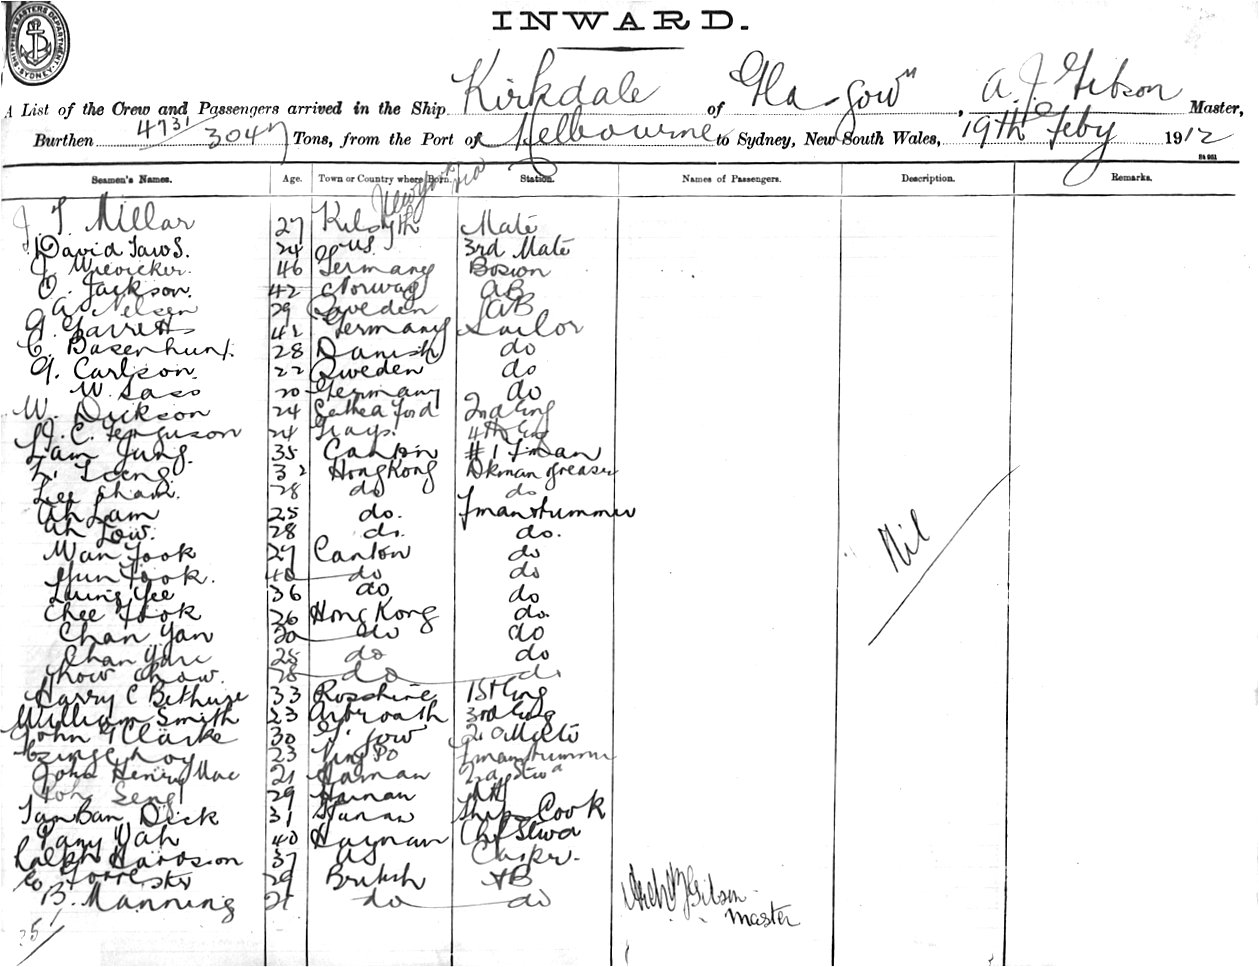 SHIPPING MASTERS DEPARTMENT SYDNEY
INWARD.
A List of the Crew and Passengers arrived in the Ship Kirkdale of Gla-gow, A. J. Gibson Master,
Burthen 4731 3047 Tons, from the Port of Melbourne to Sydney, New South Wales, 19th Feby 1912
Seamen's Names. Age. Town or Country where Born. Station. Names of Passengers. Description. Remarks.
J. T. Millar 27 Kilsyth Mate
David Taws. 24 US 3rd Mate
46 Germany Boswn
O. Jackson. 42 Norway AB
A. Nelsen 29 Sweden AB
G. Garretts 42 Germany Sailor
C. Basenhunt. 28 Danish do
G. Carlson. 22 Sweden do
W. Sass 20 Germany do
W. Dickson 24 2nd Eng
J. C. Ferguson 24 Grays. 4th Eng
Lam Jung. 35 Canton #1 Fman
32 Hong Kong Dkman greaser
Lee Sham. 28 do do
Ah Lam 25 do. Fman trimmer
Ah Low. 28 do. do.
Wan Fook 27 Canton do
Yun Fook. 40 do do
Leung Yee 36 do do
Chee Fook 26 Hong Kong do.
Chan Yan 20 do do
Chan 25 do do
28 do do
Harry C Bethune 33 1st Eng
William Smith 23 Arbroath 3rd Eng
John G Clarke 30 G. gow 2nd Mate
23 Ning Po Fman trimmer
John Henry Mac 21 Hainan 2nd Stwd
Seng 29 Hainan
Tan Ban Dick 31 Ships Cook
40 Chf Stwd
Ralph 37
Forrester 29 British AB
B. Manning do do
Nil
Gibson
Master
35